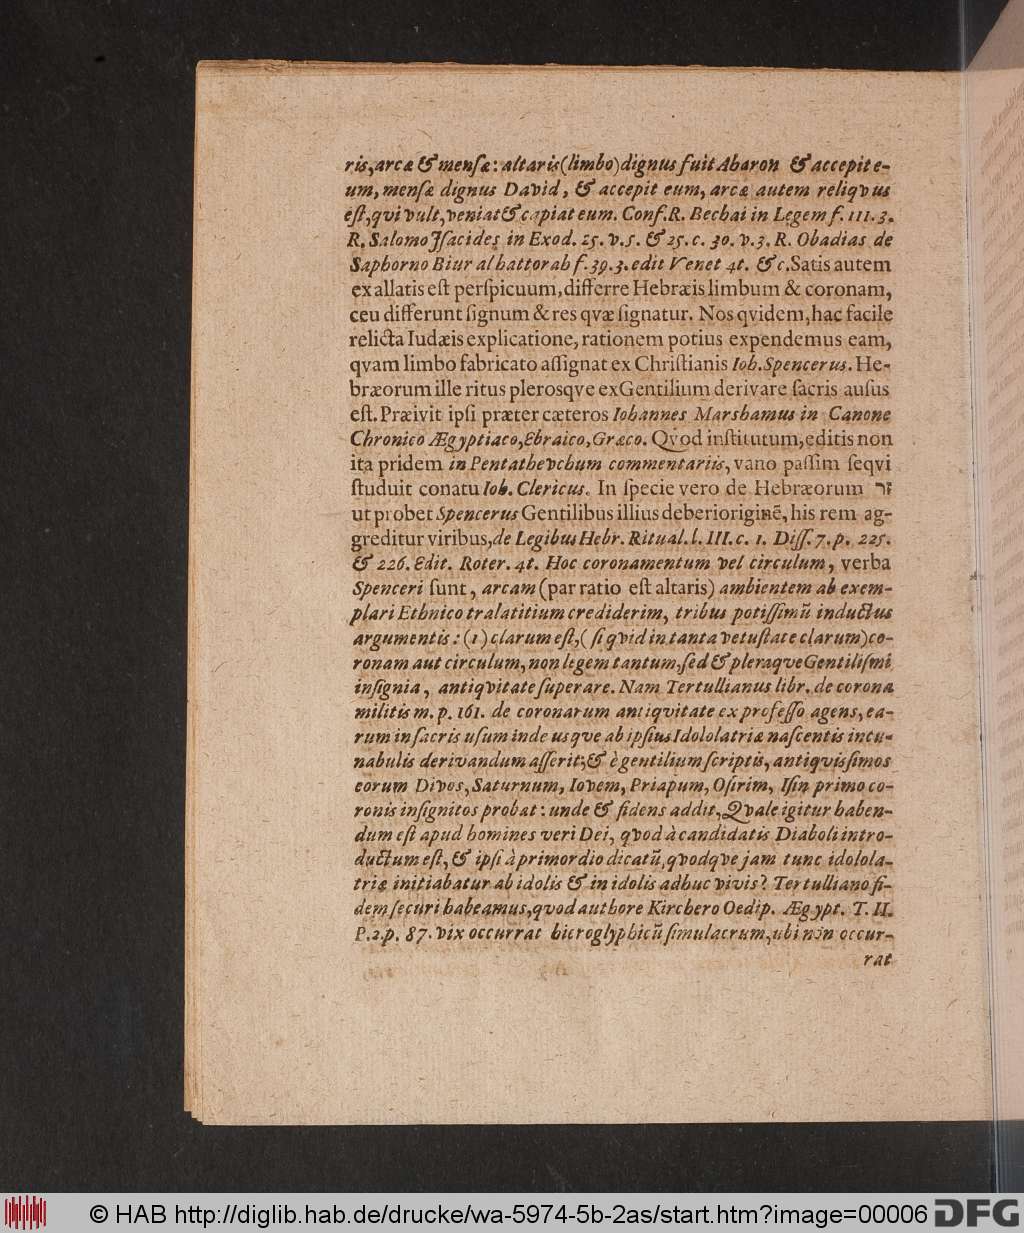 ris, arcæ & menſæ: altaris (limbo) dignus fuit Aharon & accepit e-
um, menſæ dignus David, & accepit eum, arcæ autem reliqvus
eſt, qvi vult, veniat & capiat eum. Conf. R. Bechai in Legem f. 111. 3.
R. Salomo Jſacides in Exod. 25. v. 5. & 25. c. 30. v. 3. R. Obadias de
Saphorno Biur al hattorah f. 39. 3. edit Venet 4t. &c. Satis autem
ex allatis eſt perſpicuum, differre Hebræis limbum & coronam,
ceu differunt ſignum & res qvæ ſignatur. Nos qvidem, hac facile
relicta Iudæis explicatione, rationem potius expendemus eam,
qvam limbo fabricato aſſignat ex Chriſtianis Ioh. Spencerus. He-
bræorum ille ritus plerosqve ex Gentilium derivare ſacris auſus
eſt. Præivit ipſi præter cæteros Iohannes Marshamus in Canone
Chronico Ægyptiaco, Ebraico, Græco. Qvod inſtitutum, editis non
ita pridem in Pentathevchum commentariis, vano paſſim ſeqvi
ſtuduit conatu Ioh. Clericus. In ſpecie vero de Hebræorum זר
ut probet Spencerus Gentilibus illius deberi originẽ, his rem ag-
greditur viribus, de Legibus Hebr. Ritual. l. III. c. 1. Diſſ. 7. p. 225.
& 226. Edit. Roter. 4t. Hoc coronamentum vel circulum, verba
Spenceri ſunt, arcam (par ratio eſt altaris) ambientem ab exem-
plari Ethnico tralatitium crediderim, tribus potiſſimũ inductus
argumentis: (1) clarum eſt, (ſi qvid in tanta vetuſtate clarum) co-
ronam aut circulum, non legem tantum, ſed & pleraqve Gentiliſmi
inſignia, antiqvitate ſuperare. Nam Tertullianus libr. de corona
militis m. p. 161. de coronarum antiqvitate ex profeſſo agens, ea-
rum in ſacris uſum inde usqve ab ipſius Idololatriæ naſcentis incu-
nabulis derivandum aſſerit; & è gentilium ſcriptis, antiqvisſimos
eorum Divos, Saturnum, Iovem, Priapum, Oſirim, Iſin primo co-
ronis inſignitos probat: unde & fidens addit, Qvale igitur haben-
dum eſt apud homines veri Dei, qvod à candidatis Diaboli intro-
ductum eſt, & ipſi à primordio dicatũ, qvodqve jam tunc idolola-
triæ initiabatur ab idolis & in idolis adhuc vivis? Tertulliano fi-
dem ſecuri habeamus, qvod authore Kirchero Oedip. Ægypt. T. II.
P. 2. p. 87. vix occurrat hieroglyphicũ ſimulacrum, ubi non occur-
rat
© HAB http://diglib.hab.de/drucke/wa-5974-5b-2as/start.htm?image=00006 DFG